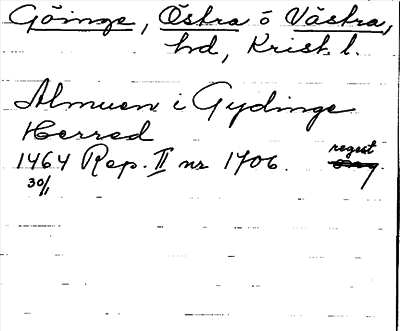 Göinge, Östra o Västra,
hd, Krist. l.
Almuen i Gydinge
Herred
1464 Rep. II nr 1706. regest
30/1